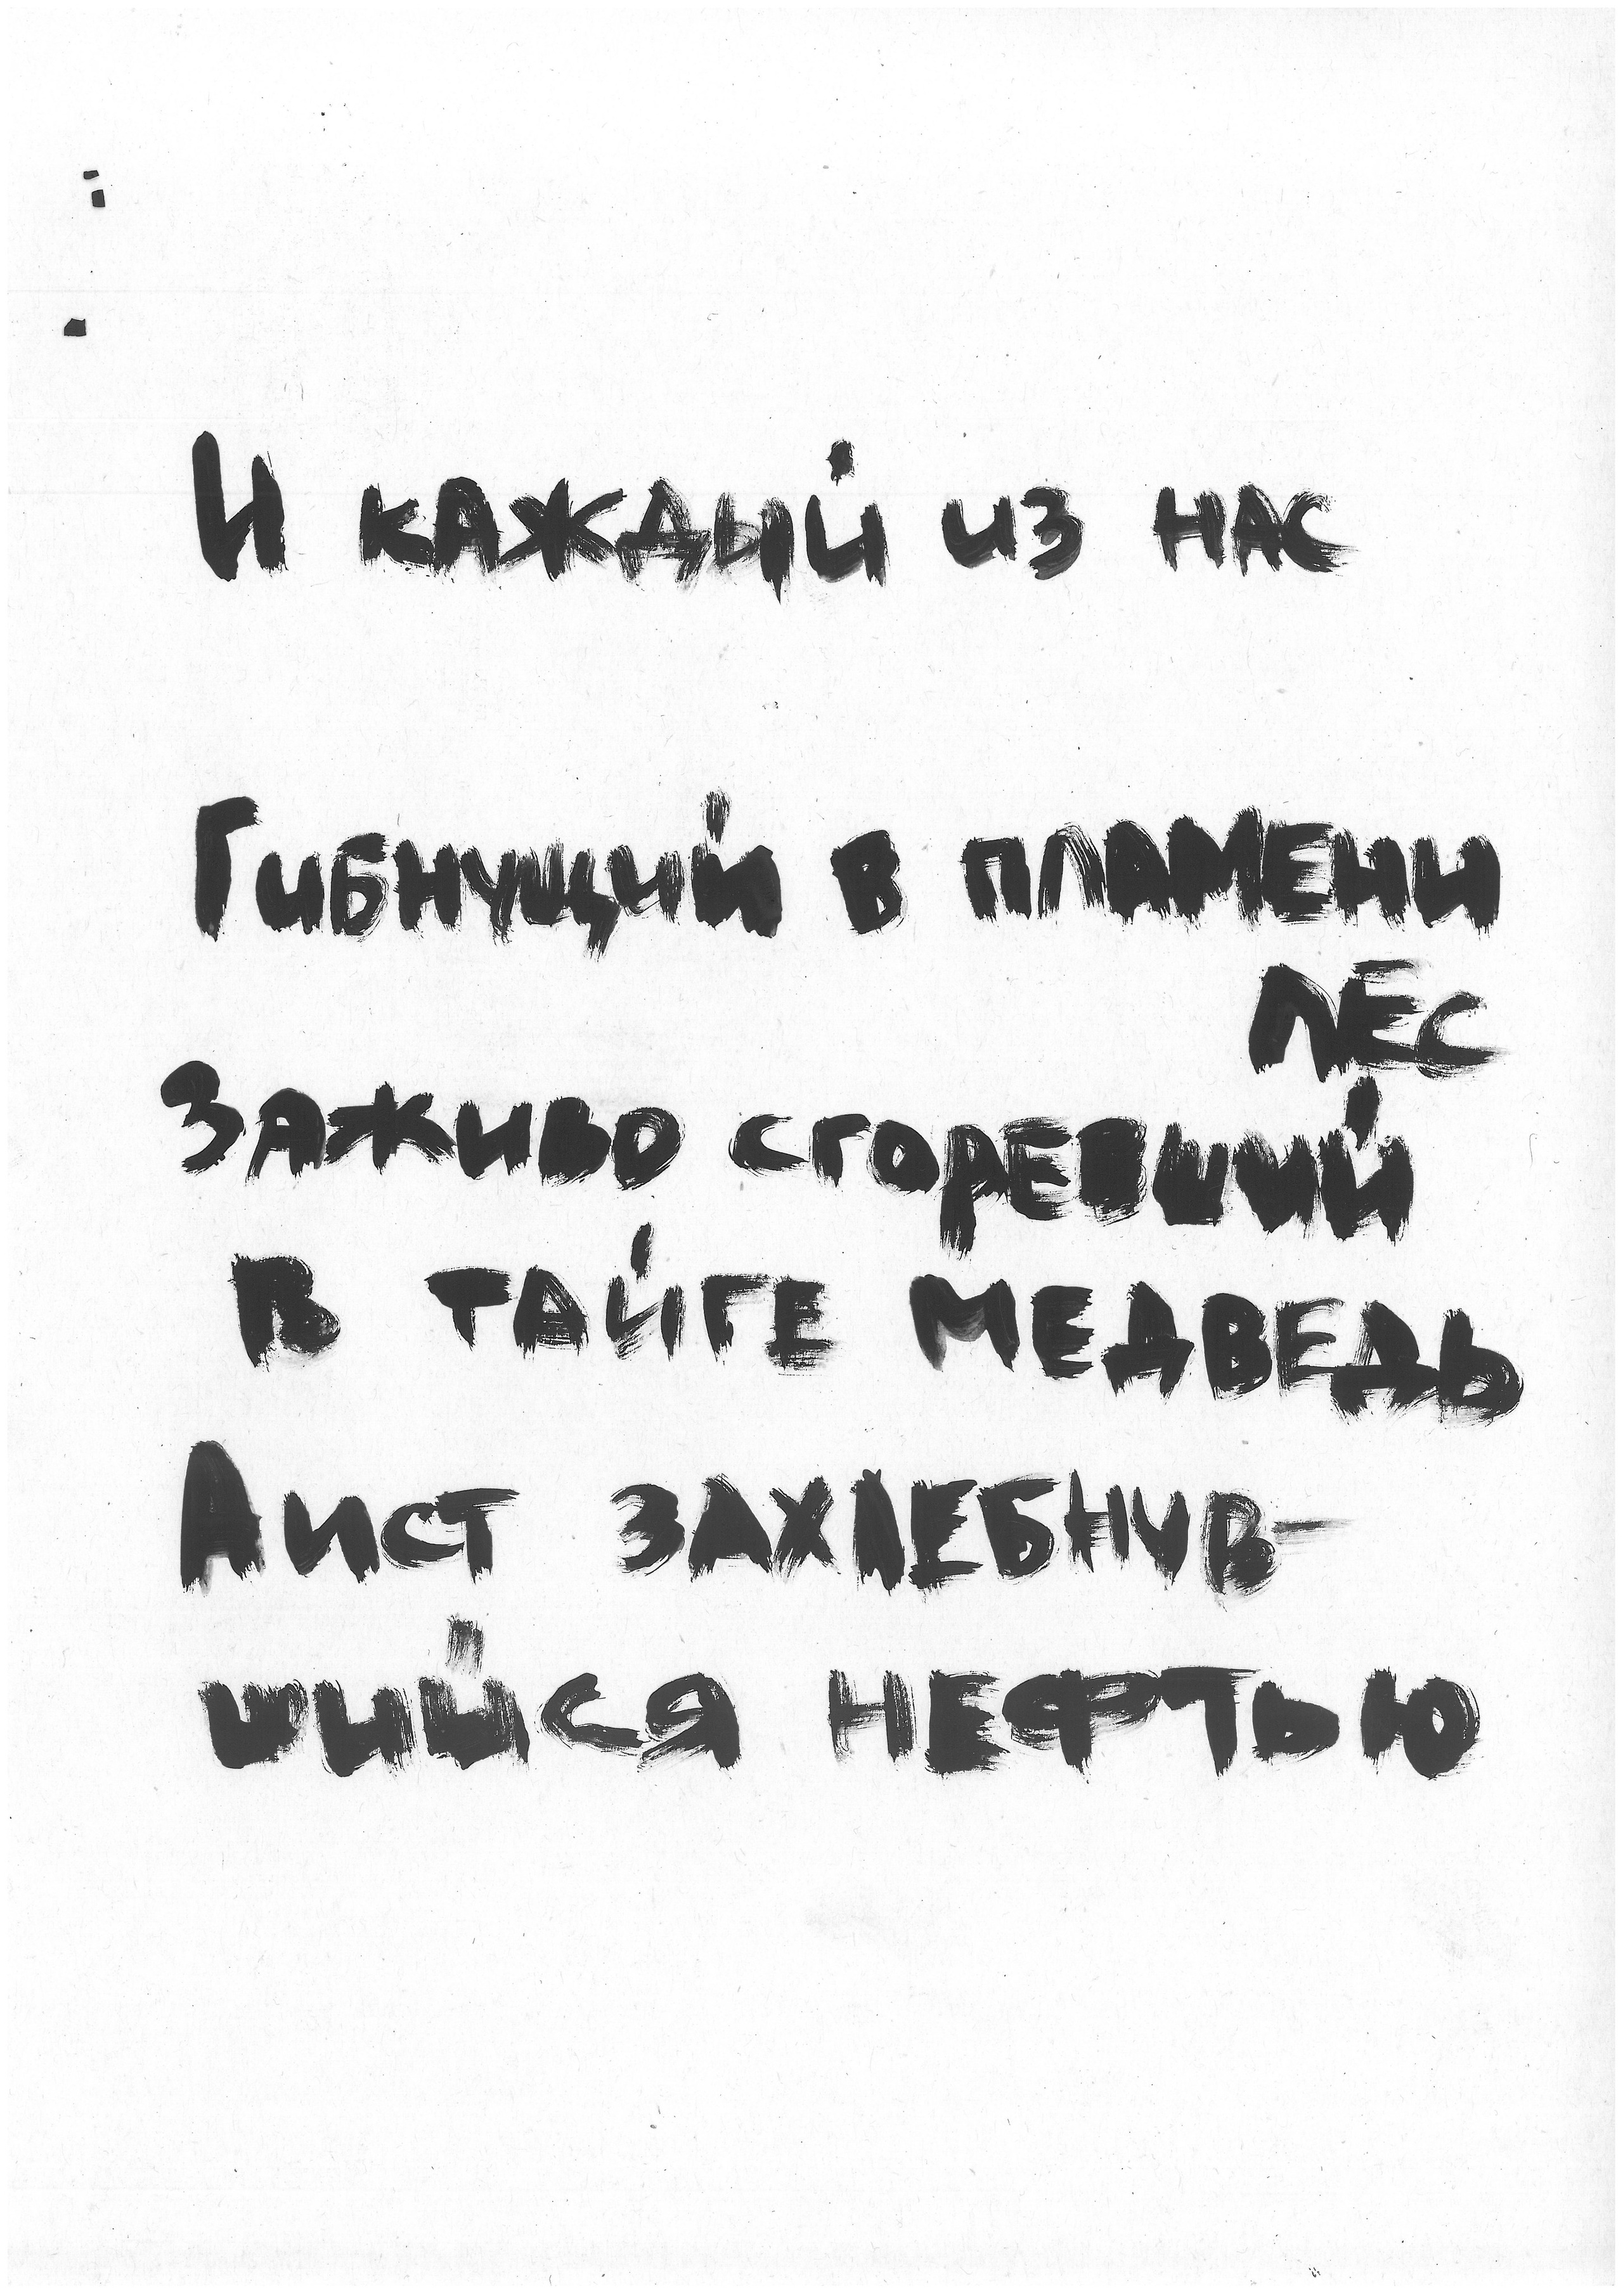 И каждый из нас
Гибнущий в пламени
лес
Заживо сгоревший
в тайге медведь
Аист захлебнув-
шийся нефтью